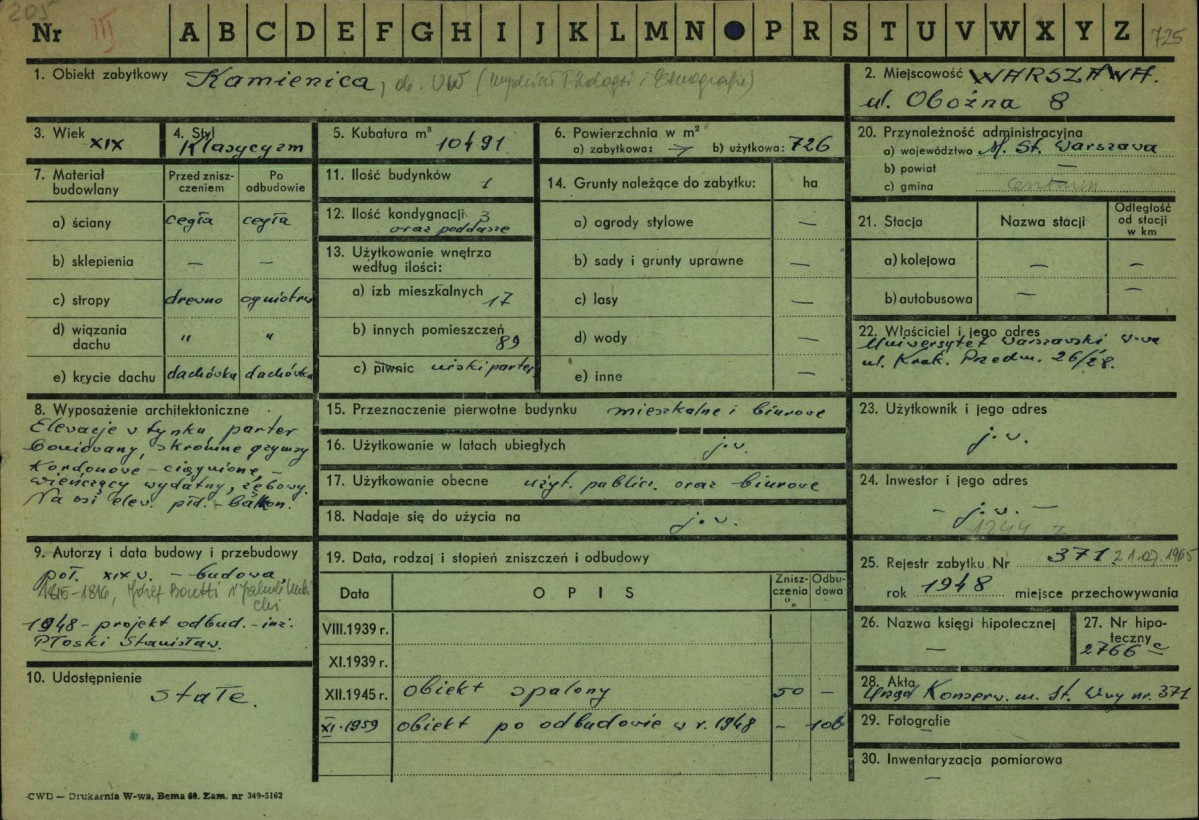 205
Nr III A B C D E F G H I J K L M N P R S T U V W X Y Z 725
1. Obiekt zabytkowy Kamienica, ob. UW (Wydział Filologii i Etnografii)
2. Miejscowość WARSZAWA.
ul. Oboźna 8
3. Wiek XIX
4. Styl Klasycyzm
5. Kubatura m³ 10491
6. Powierzchnia w m²
a) zabytkowa: — b) użytkowa: 726
7. Materiał budowlany
Przed zniszczeniem
Po odbudowie
a) ściany cegła cegła
b) sklepienia — —
c) stropy drewno ogniotrw
d) wiązania dachu " "
e) krycie dachu dachówka dachówka
11. Ilość budynków 1
12. Ilość kondygnacji 3
oraz poddasze
13. Użytkowanie wnętrza
według ilości:
a) izb mieszkalnych 17
b) innych pomieszczeń 89
c) piwnic niski parter
14. Grunty należące do zabytku: ha
a) ogrody stylowe —
b) sady i grunty uprawne —
c) lasy —
d) wody —
e) inne —
20. Przynależność administracyjna
a) województwo M. St. Warszawa
b) powiat —
c) gmina
21. Stacja Nazwa stacji Odległość od stacji w km
a) kolejowa — —
b) autobusowa — —
22. Właściciel i jego adres
Uniwersytet Warszawski W-wa
ul. Krak. Przedm. 26/28.
8. Wyposażenie architektoniczne
Elewacje w tynku, parter
boniowany, skromne gzymsy
Kordonowe - ciągnione, -
wieńczący wydatny, ząbkowy.
Na osi elew. płd. - balkon.
9. Autorzy i data budowy i przebudowy
poł. XIX w. - budowa,
1815-1816, Józef Boretti i Jakub
1948 - projekt odbud. - inż.
Płoski Stanisław.
10. Udostępnienie
stałe.
15. Przeznaczenie pierwotne budynku mieszkalne i biurowe
16. Użytkowanie w latach ubiegłych j.w.
17. Użytkowanie obecne użyt. publicz. oraz biurowe
18. Nadaje się do użycia na j.w.
19. Data, rodzaj i stopień zniszczeń i odbudowy
Data OPIS Zniszczenia % Odbudowa
VIII.1939 r.
XI.1939 r.
XII.1945 r. obiekt spalony 50 —
XI.1959 obiekt po odbudowie w r. 1948 - 100
23. Użytkownik i jego adres
j.w.
24. Inwestor i jego adres
— j.w. —
25. Rejestr zabytku Nr 371 z 1.07.1965
rok 1948 miejsce przechowywania
26. Nazwa księgi hipotecznej
—
27. Nr hipoteczny
2766 c
28. Akta
Urząd Konserw. m. St. W-wy nr. 371
29. Fotografie
—
30. Inwentaryzacja pomiarowa
—
CWD — Drukarnia W-wa, Bema 60. Zam. nr 349-5162